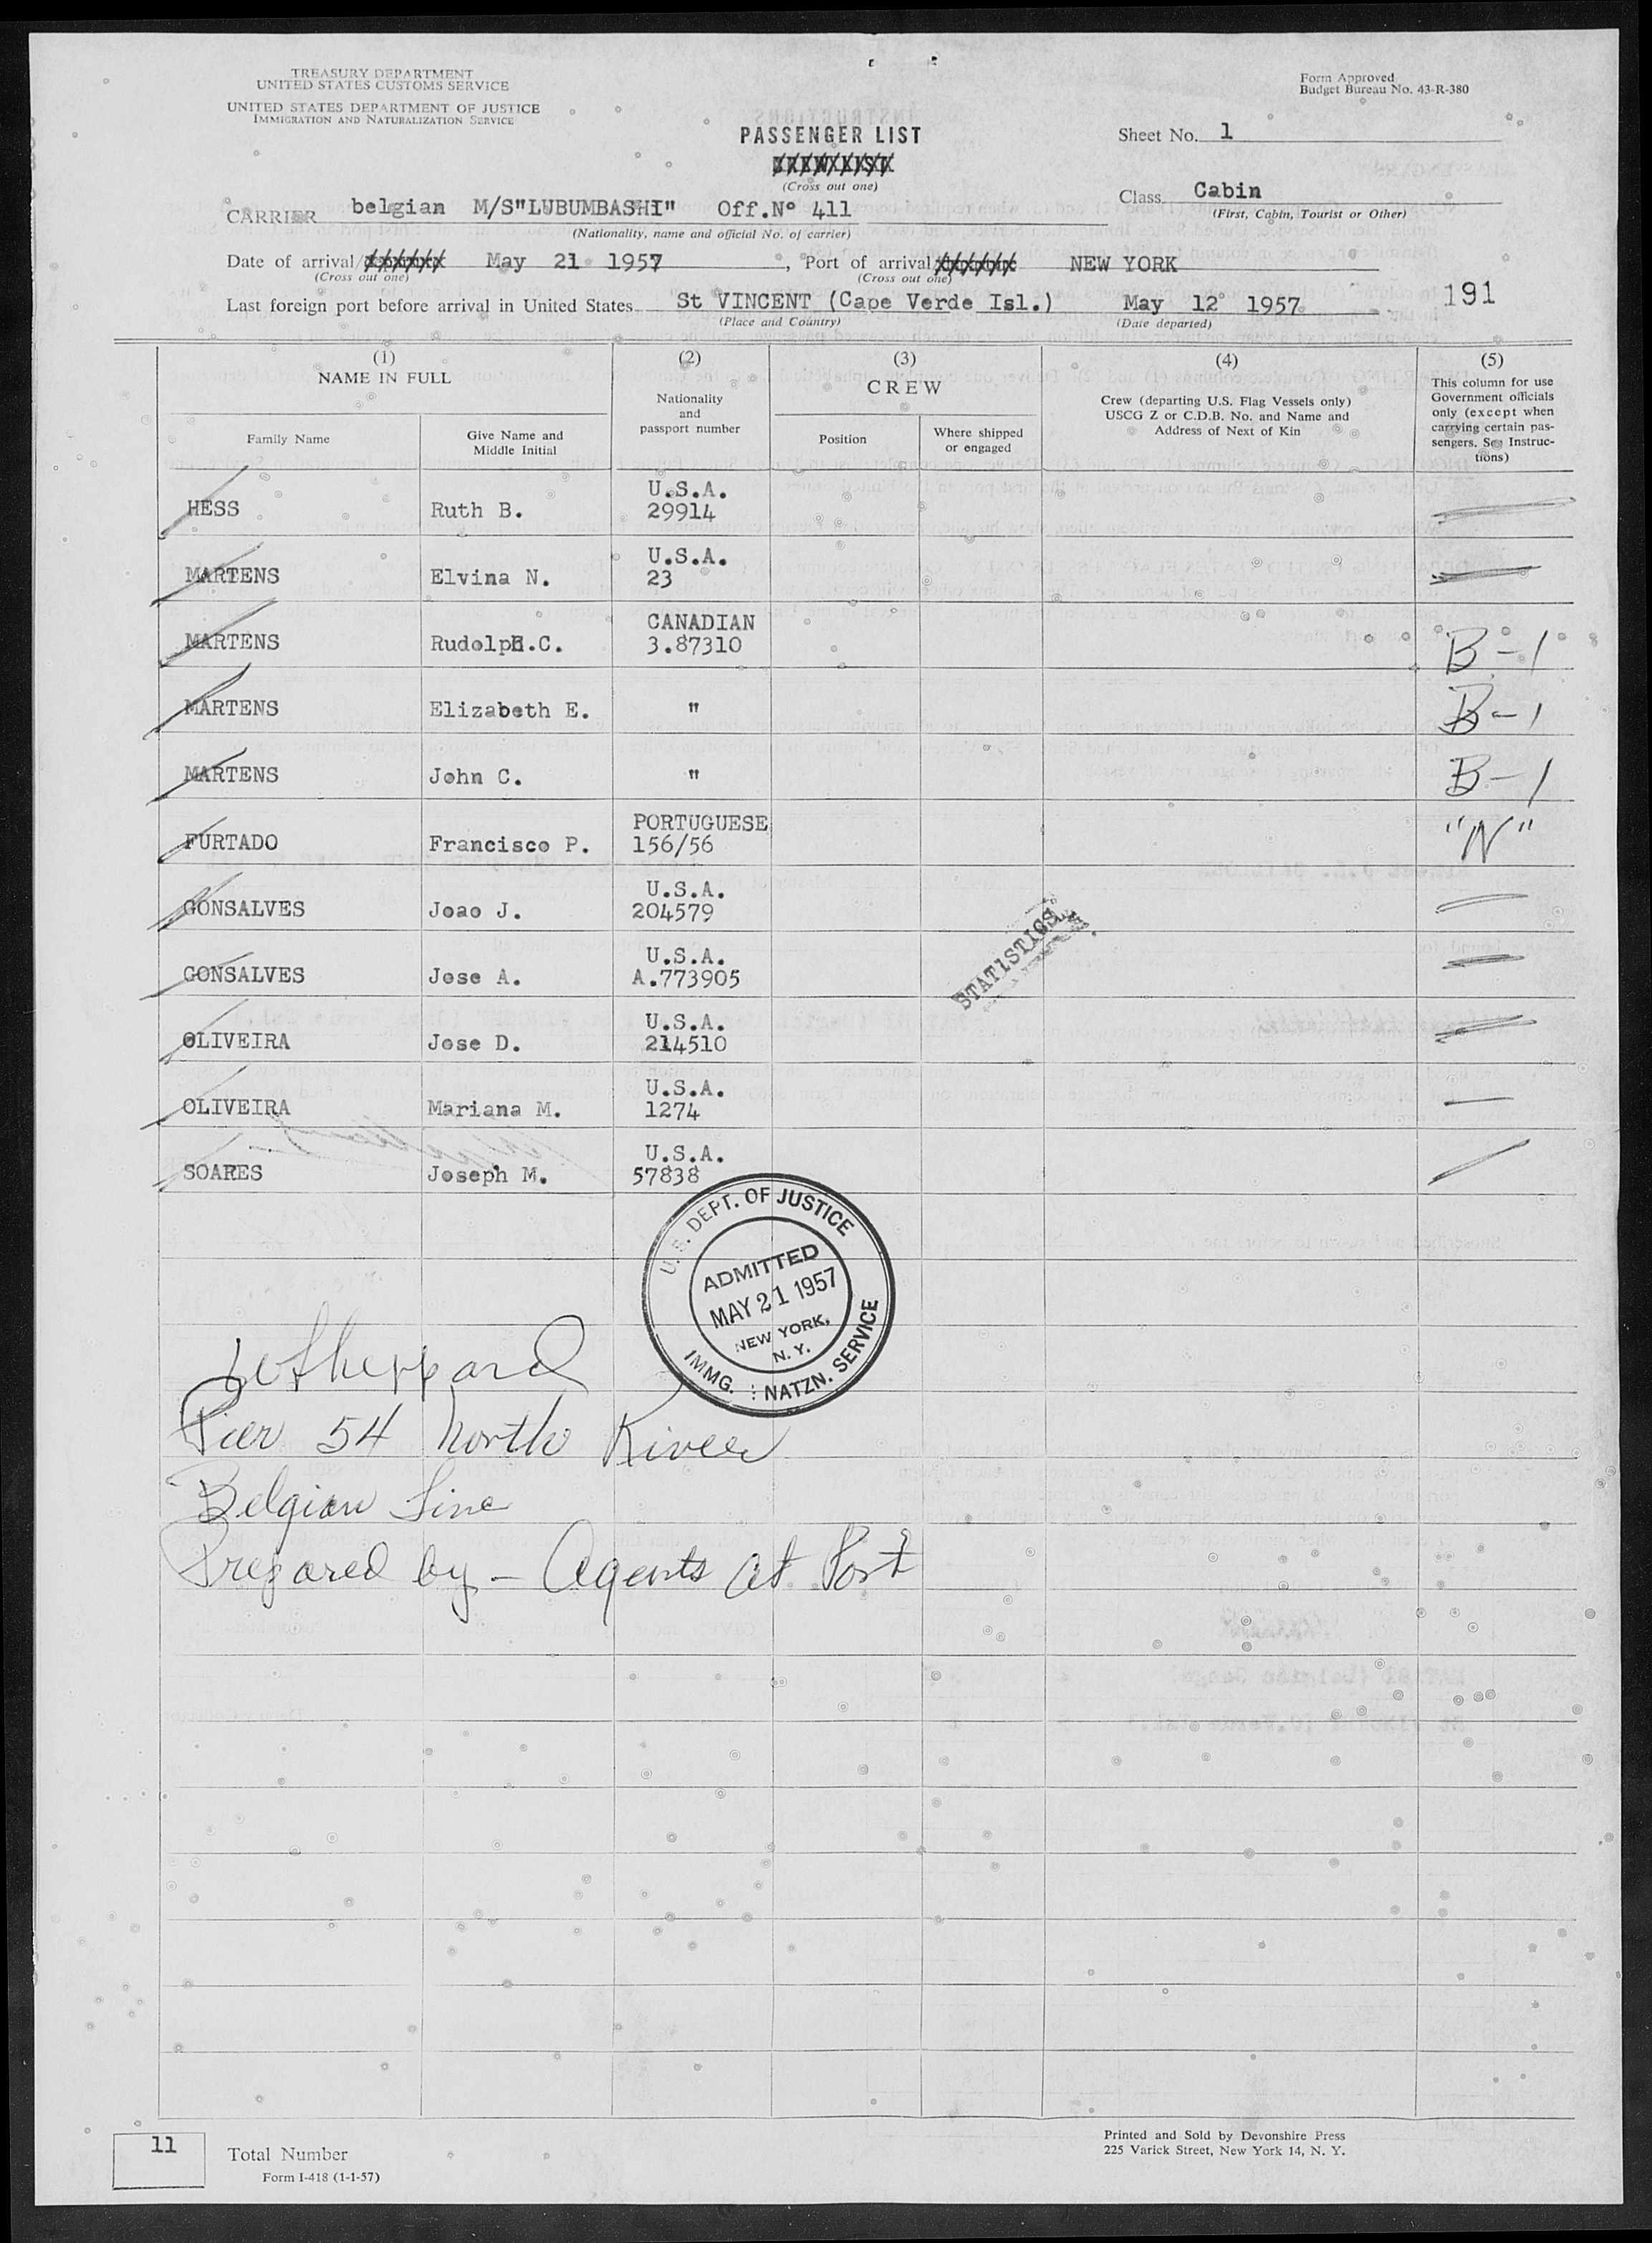 TREASURY DEPARTMENT
UNITED STATES CUSTOMS SERVICE
UNITED STATES DEPARTMENT OF JUSTICE
IMMIGRATION AND NATURALIZATION SERVICE
Form Approved
Budget Bureau No. 43-R-380
PASSENGER LIST
(Cross out one)
Sheet No. 1
Class Cabin
(First, Cabin, Tourist or Other)
CARRIER belgian M/S"LUBUMBASHI" Off.N° 411
(Nationality, name and official No. of carrier)
Date of arrival/ May 21 1957, Port of arrival/ NEW YORK
(Cross out one) (Cross out one)
Last foreign port before arrival in United States St VINCENT (Cape Verde Isl.) May 12 1957
(Place and Country) (Date departed)
191
(1) (2) (3) (4) (5)
NAME IN FULL
Family Name
Give Name and
Middle Initial
Nationality
and
passport number
CREW
Position
Where shipped
or engaged
Crew (departing U.S. Flag Vessels only)
USCG Z or C.D.B. No. and Name and
Address of Next of Kin
This column for use
Government officials
only (except when
carrying certain pas-
sengers. See Instruc-
tions)
U.S.A.
HESS Ruth B. 29914
U.S.A.
MARTENS Elvina N. 23
CANADIAN
MARTENS Rudolph.C. 3.87310 B-1
MARTENS Elizabeth E. " B-1
MARTENS John C. " B-1
PORTUGUESE
FURTADO Francisco P. 156/56 "N"
U.S.A.
GONSALVES Joao J. 204579
U.S.A.
GONSALVES Jose A. A.773905
STATISTICS
U.S.A.
OLIVEIRA Jose D. 214510
U.S.A.
OLIVEIRA Mariana M. 1274
U.S.A.
SOARES Joseph M. 57838
U.S. DEPT. OF JUSTICE
ADMITTED
MAY 21 1957
NEW YORK,
N. Y.
IMMG. : NATZN. SERVICE
Sheppard
Pier 54 North River
Belgian Line
Prepared by - Agents at Port
11
Total Number
Form I-418 (1-1-57)
Printed and Sold by Devonshire Press
225 Varick Street, New York 14, N. Y.